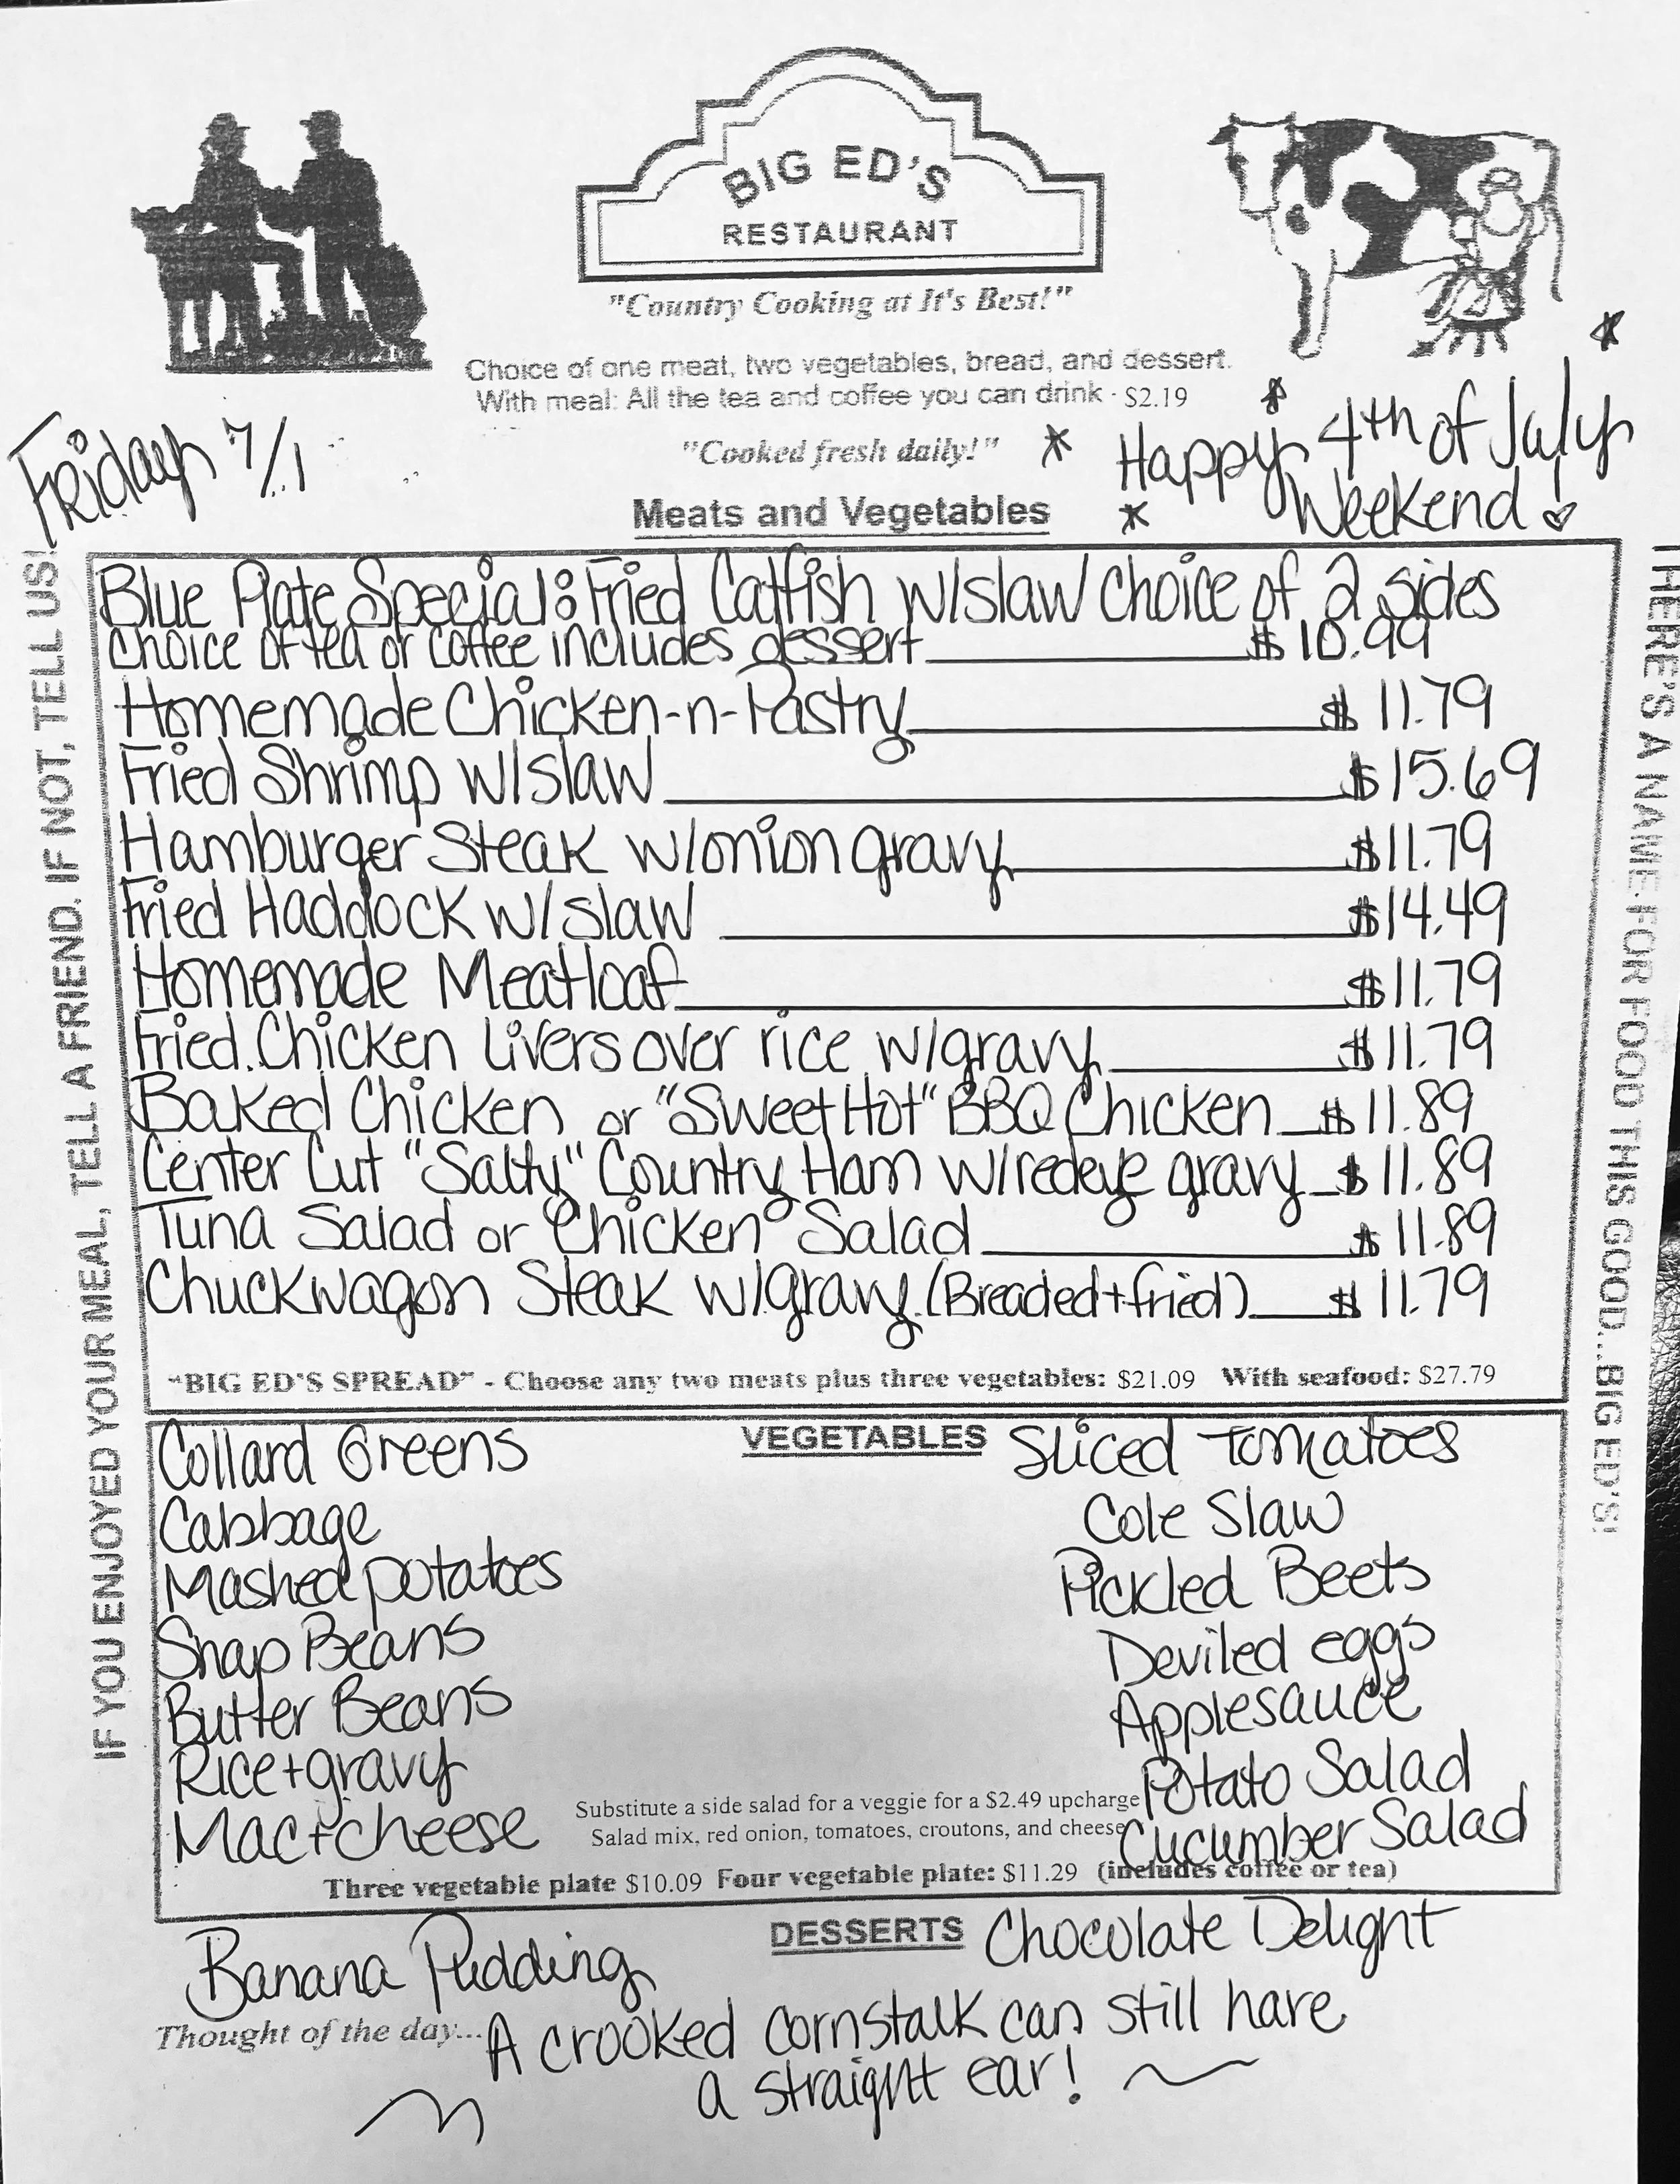 BIG ED'S
RESTAURANT
"Country Cooking at It's Best!"
Choice of one meat, two vegetables, bread, and dessert.
With meal: All the tea and coffee you can drink - $2.19
"Cooked fresh daily!"
Friday 7/1
* Happy 4th of July
Weekend!
Meats and Vegetables
IF YOU ENJOYED YOUR MEAL, TELL A FRIEND. IF NOT, TELL US!
THERE'S A NAME FOR FOOD THIS GOOD...BIG ED'S!
Blue Plate Special: Fried Catfish w/slaw choice of 2 sides
choice of tea or coffee includes dessert $10.99
Homemade Chicken-n-Pastry $11.79
Fried Shrimp w/slaw $15.69
Hamburger Steak w/onion gravy $11.79
Fried Haddock w/slaw $14.49
Homemade Meatloaf $11.79
Fried Chicken Livers over rice w/gravy $11.79
Baked Chicken or "Sweet Hot" BBQ Chicken $11.89
Center Cut "Salty" Country Ham w/redeye gravy $11.89
Tuna Salad or Chicken Salad $11.89
Chuckwagon Steak w/gravy (Breaded+fried) $11.79
"BIG ED'S SPREAD" - Choose any two meats plus three vegetables: $21.09 With seafood: $27.79
VEGETABLES
Collard Greens
Cabbage
Mashed potatoes
Snap Beans
Butter Beans
Rice+gravy
Mac+cheese
Sliced Tomatoes
Cole Slaw
Pickled Beets
Deviled eggs
Applesauce
Potato Salad
Cucumber Salad
Substitute a side salad for a veggie for a $2.49 upcharge
Salad mix, red onion, tomatoes, croutons, and cheese
Three vegetable plate $10.09 Four vegetable plate: $11.29 (includes coffee or tea)
DESSERTS
Banana Pudding
Chocolate Delight
Thought of the day... A crooked cornstalk can still have
a straight ear!